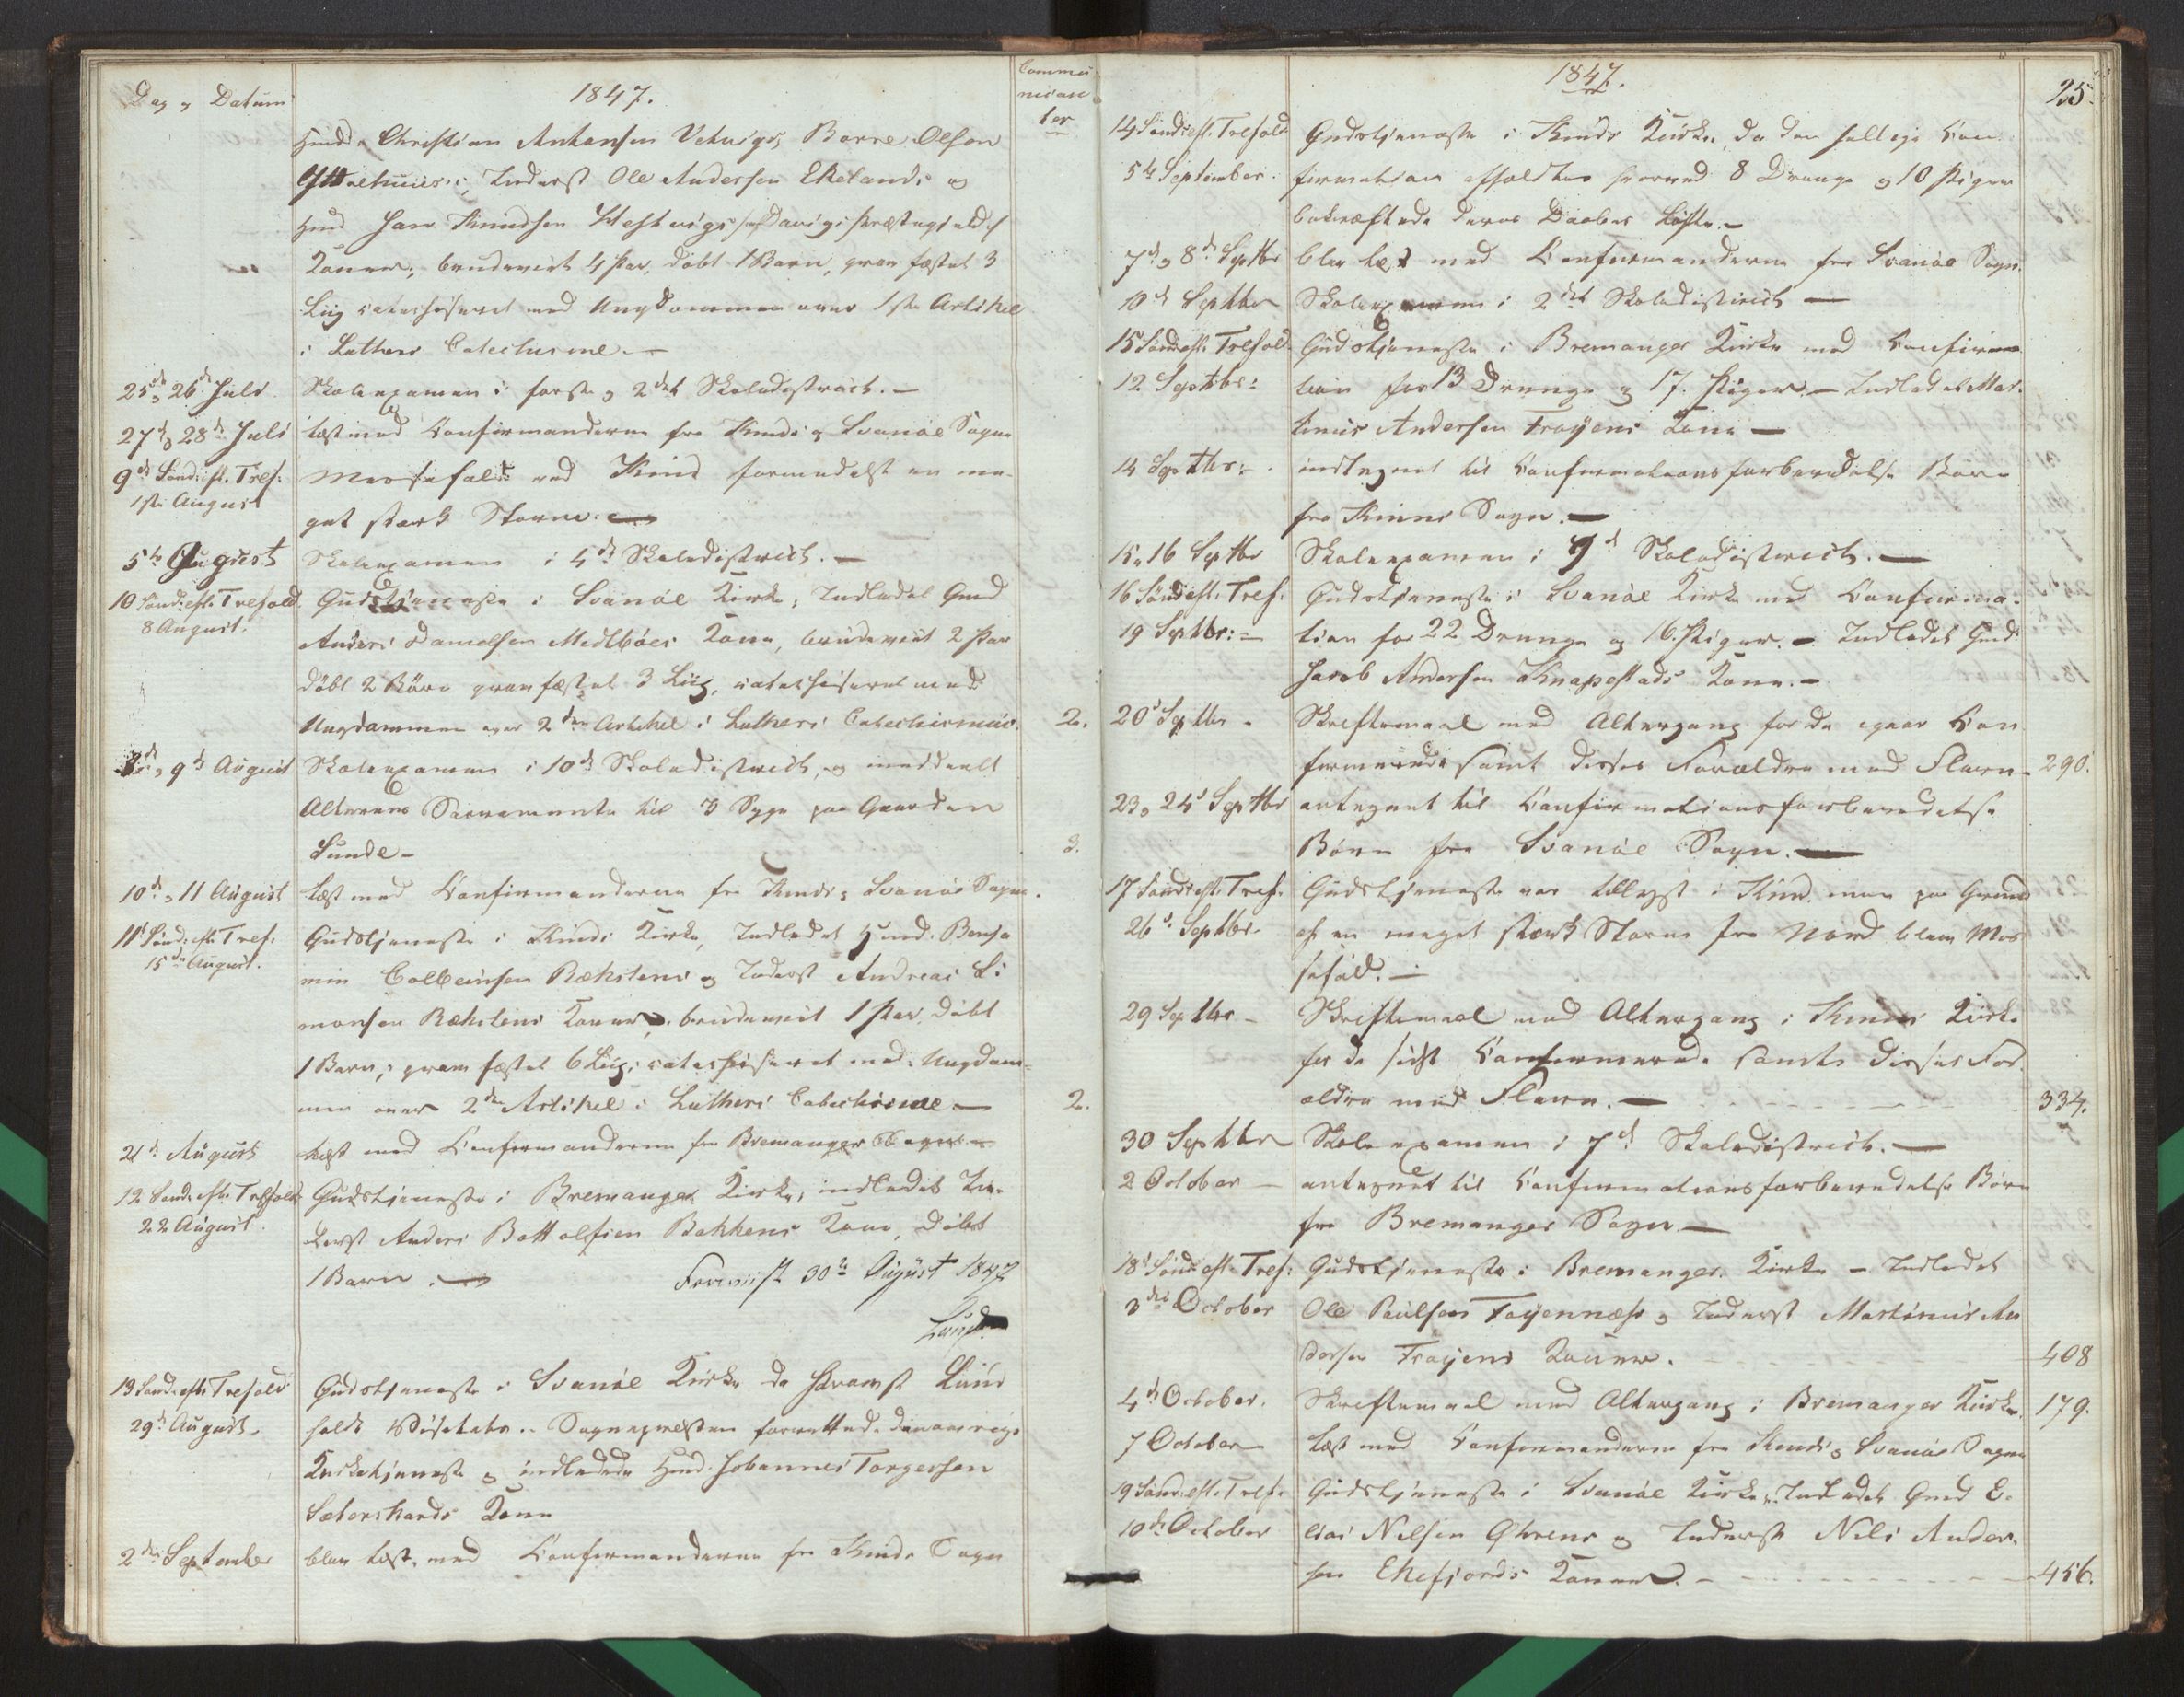 Dag og Datum
1847.
Communicanter
Huusd: Christian Antonsen Vetvigs, Børre Olsen
Inderst Ole Andersen Ekelands og
Huusd Hans Knudsen
Koner; brudeviet 4 Par, døbt 1 Barn, gravfæstet 3
Liig catechiseret med Ungdommen over 1ste Artikel
i Luthers Catechisme.—
25de og 26de Juli
Skoleexamen i første og 2det Skoledistrict.—
27de og 28de Juli
læst med Confirmanderne fra Kinds og Svanøe Sogne
9de Sønd: eft. Tref:
1ste August
Messefald ved Kind formedelst en me-
get stærk Storm.—
5te August
Skoleexamen i 4de Skoledistrict.—
10 Sønd: eft. Trefold
8 August.
Gudstjeneste i Svanøe Kirke; Indledet Gmd
Anders Danielsen Medlbøes Kone, brudeviet 2 Par
døbt 2 Børn gravfæstet 3 Liig, catechiseret med
Ungdommen over 2den Artikel i Luthers Catechismus.
2.
8de og 9de August
Skoleexamen i 10de Skoledistrict, og meddeelt
Alterens Sacramente til 3 Syge paa Gaarden
Sunde—
3.
10de og 11 August
læst med Confirmanderne fra Kinds og Svanøe Sogne.
11te Sønd: eft. Tref.
15de August.
Gudstjeneste i Kinds Kirke, Indledet Huusd. Benja
min Colbeinsen Rækstens og Inderst Andreas Si
monsen Rækstens Koner, brudeviet 1 Par, døbt
1 Barn, gravfæstet 6 Liig, catechiseret med Ungdom-
men over 2den Artikel i Luthers Catechisme—
2.
21de August
læst med Confirmanderne fra Bremanger Sogn—
12 Sønd: eft. Trefold
22 August.
Gudstjeneste i Bremanger Kirke, indledet In-
derst Anders Bottolfsen Bakkens Kone, døbt
1 Barn.—
Foreviist 30te August 1847
13 Sønd: eft. Trefold
29de August.
Gudstjeneste i Svanøe Kirke da Provst Lund
holdt Visitats.. Sognepresten forrettede
Kirketjeneste og indledede Huusd Johannes Torgersen
Sæterskards Kone
2den September
blev læst med Confirmanderne fra Kinds Sogn
1847.
25.
14 Sønd: eft. Trefold
5te September.
Gudstjeneste i Kinds Kirke, da den hellige Con
firmation afholdtes hvorved 8 Drenge og 10 Piger
bekræftede deres Daabes Løfte.—
7de og 8de Septbr
blev læst med Confirmanderne fra Svanøe Sogn.
10de Septbr
Skoleexamen i 2det Skoledistrict—
15 Sønd: eft. Trefold.
12 Septbr:
Gudstjeneste i Bremanger Kirke med Confirma
tion for 13 Drenge og 17. Piger.— Indledet Mar-
tinus Andersen Frøyens Kone—
14 Septbr:
indtegnet til Confirmationsforberedelse Børn
fra Kinns Sogn.—
15, 16 Septbr
Skoleexamen i 9de Skoledistrict.—
16 Sønd: eft. Tref.
19 Septbr:
Gudstjeneste i Svanøe Kirke med Confirma-
tion for 22 Drenge og 16. Piger.— Indledet Gmd
Jacob Andersen Knapstads Kone.—
20de Septbr
Skriftemaal med Altergang for de igaar Con
firmerede samt disses Forældre med Flere—
290.
23 og 24de Septbr
antegnet til Confirmationsforberedelse
Børn fra Svanøe Sogn.—
17 Sønd: eft. Tref.
26de Septbr.
Gudstjeneste var tillyst i Kind men paa Grund
af en meget stærk Storm fra Nord blev Mes
sefald.—
29 Septbr—
Skriftemaal med Altergang i Kinns Kirke
for de sidst Confirmerede samt disses For-
ældre med Flere.—
334.
30 Septbr
Skoleexamen i 7de Skoledistrict.—
2 October—
antegnet til Confirmationsforberedelse Børn
fra Bremanger Sogn—
18de Sønd: eft. Tref:
3die October
Gudstjeneste i Bremanger Kirke— Indledet
Ole Paulsen Føyennæss og Inderst Martinus An
dersen Frøyens Koner.
408
4de October.
Skriftemaal med Altergang i Bremanger Kirke.
179.
7 October—
læst med Confirmanderne fra Kinds og Svanøe Sogne
19 Sønd: eft. Tref.
10de October
Gudstjeneste i Svanøe Kirke. Indledet Gmd E-
lias Nilsen og Inderst Nils Ander-
sen Ekefjords Koner.—
456.